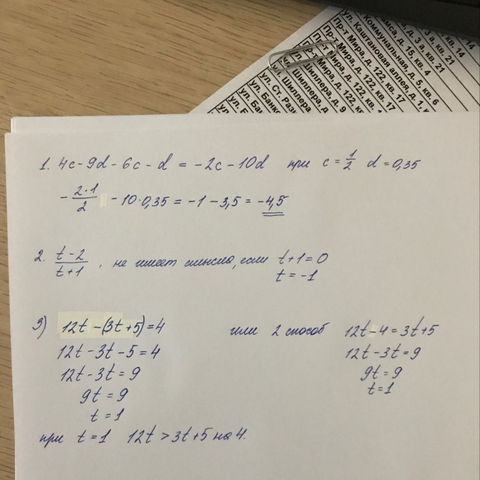 Коммунальная, д. 5, кв. 6
ул. Каштановая аллея, д. 1,
Пр-т Мира, д. 122, кв. 17
1. 4c-9d-6c-d = -2c-10d при c = 1/2 d = 0,35
- 2·1/2 - 10·0,35 = -1 - 3,5 = -4,5
2. t-2/t+1, не имеет смысла, если t+1=0
t = -1
3) 12t-(3t+5)=4 или 2 способ 12t-4=3t+5
12t-3t-5=4 12t-3t=9
12t-3t=9 9t=9
9t=9 t=1
t=1
при t=1 12t>3t+5 на 4.